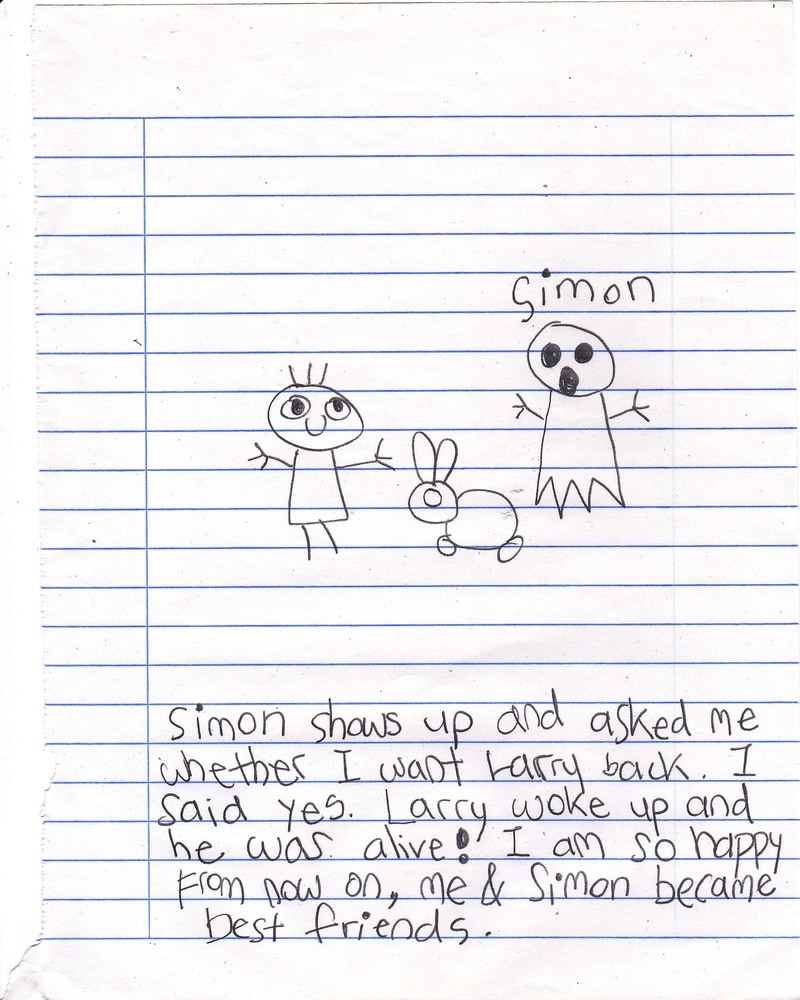 Simon
Simon shows up and asked me
whether I want Larry back. I
said yes. Larry woke up and
he was alive! I am so happy
From now on, me & Simon became
best friends.